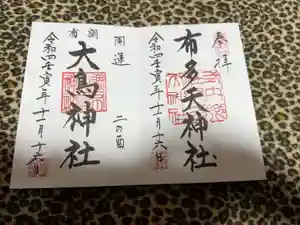 奉拝
布多天神社
令和四壬寅年十一月十六日
調布
開運
大鳥神社
二の酉
令和四壬寅年十一月十六日